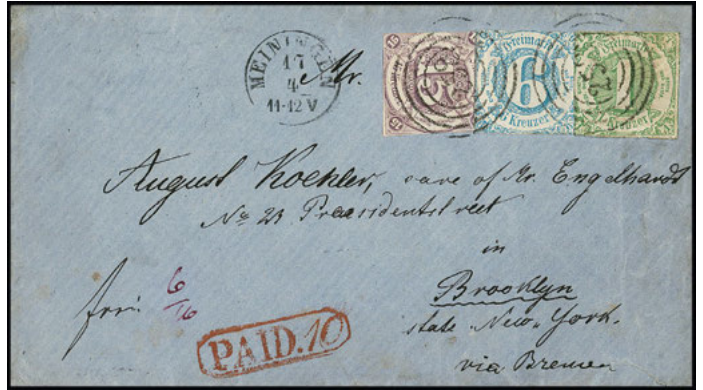 MEININGEN
17
4
11-12 V
15
15
Freimarke
6
Kreuzer
Freimarke
1
Kreuzer
Mr.
August Koehler, care of Mr. Engelhardt
No 23 Praesidentstreet
in
Brooklyn
state New-York.
via Bremen
frei
6/16
PAID.10